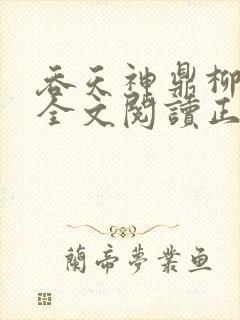 吞天神鼎柳
全文閱讀正
蘭帝夢業鱼